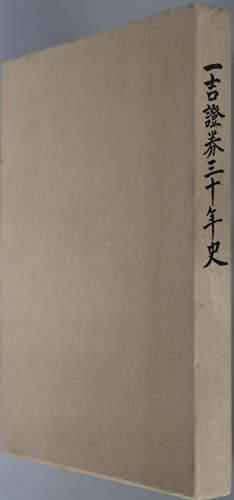 一吉證券三十年史